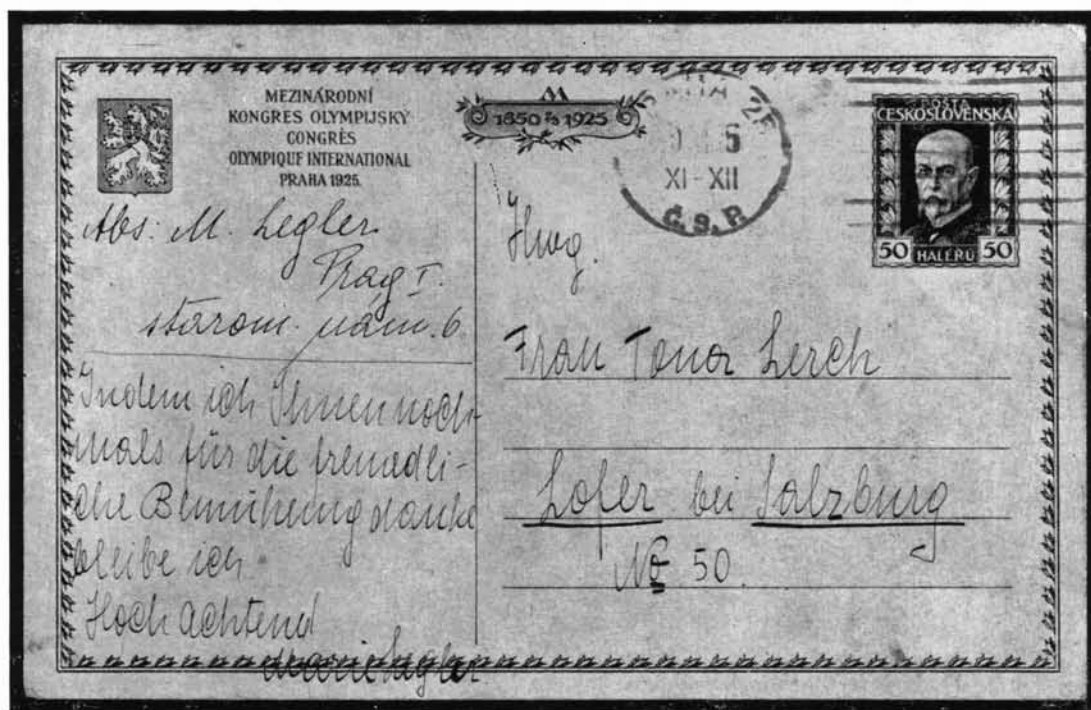 MEZINÁRODNÍ
KONGRES OLYMPIJSKÝ
CONGRÈS
OLYMPIQUE INTERNATIONAL
PRAHA 1925.
1850 1925
XI-XII
Č.S.P.
POŠTA
ČESKOSLOVENSKÁ
50 HALÉŘŮ 50
Abs: M. Legler
Prag I.
starom. nám. 6
Indem ich Ihnen noch-
mals für die freundli-
che Bemühung danke
bleibe ich
Hochachtend
Marie Legler
Frau Tona Lerch
Lofer bei Salzburg
No 50.